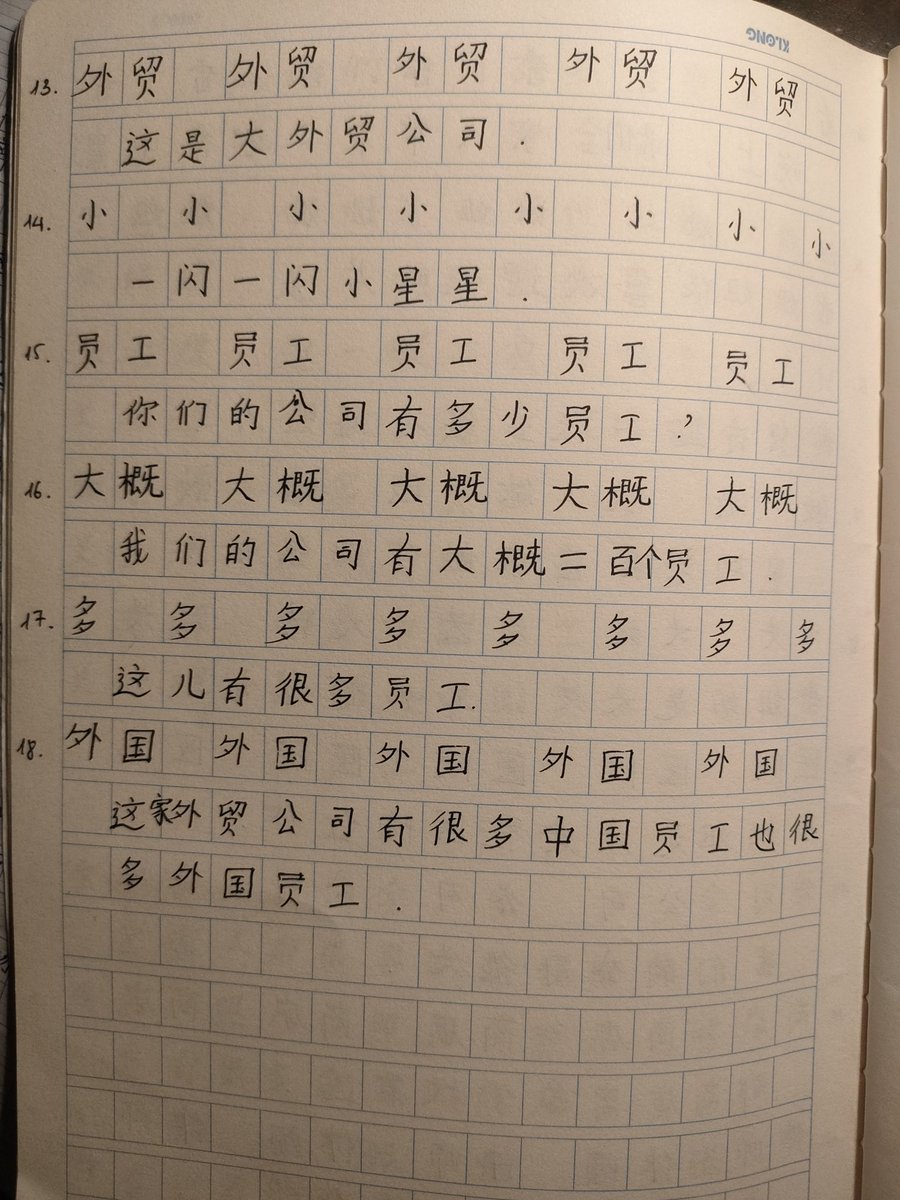 KLONG
13. 外贸 外贸 外贸 外贸 外贸
这是大外贸公司.
14. 小 小 小 小 小 小 小 小
一闪一闪小星星.
15. 员工 员工 员工 员工 员工
你们的公司有多少员工?
16. 大概 大概 大概 大概 大概
我们的公司有大概二百个员工.
17. 多 多 多 多 多 多 多 多
这儿有很多员工.
18. 外国 外国 外国 外国 外国
这家外贸公司有很多中国员工也很
多外国员工.